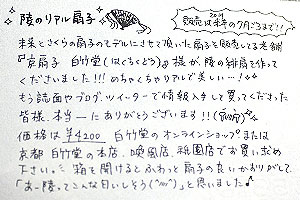 陸のリアル扇子
2014
販売は来年の7月ごろまで!!
未来とさくらの扇子のモデルにさせて頂いた扇子を販売してる老舗
『京扇子 白竹堂(はくちくどう)』様が、陸の緋扇を作って
くださいました!!!めちゃくちゃリアルで美しい…!
もう雑誌やブログ、ツイーターで情報入手して買ってくださった
皆様、本当ーにありがとうございます!!
価格は¥4200 白竹堂のオンラインショップまたは
京都 白竹堂の本店、嵯峨店、祇園店でお買い求め
下さい。箱を開けるとふわっと扇子の良いかおりがして
「あー陸ってこんな匂いしそう(^w^)」と思いました♪